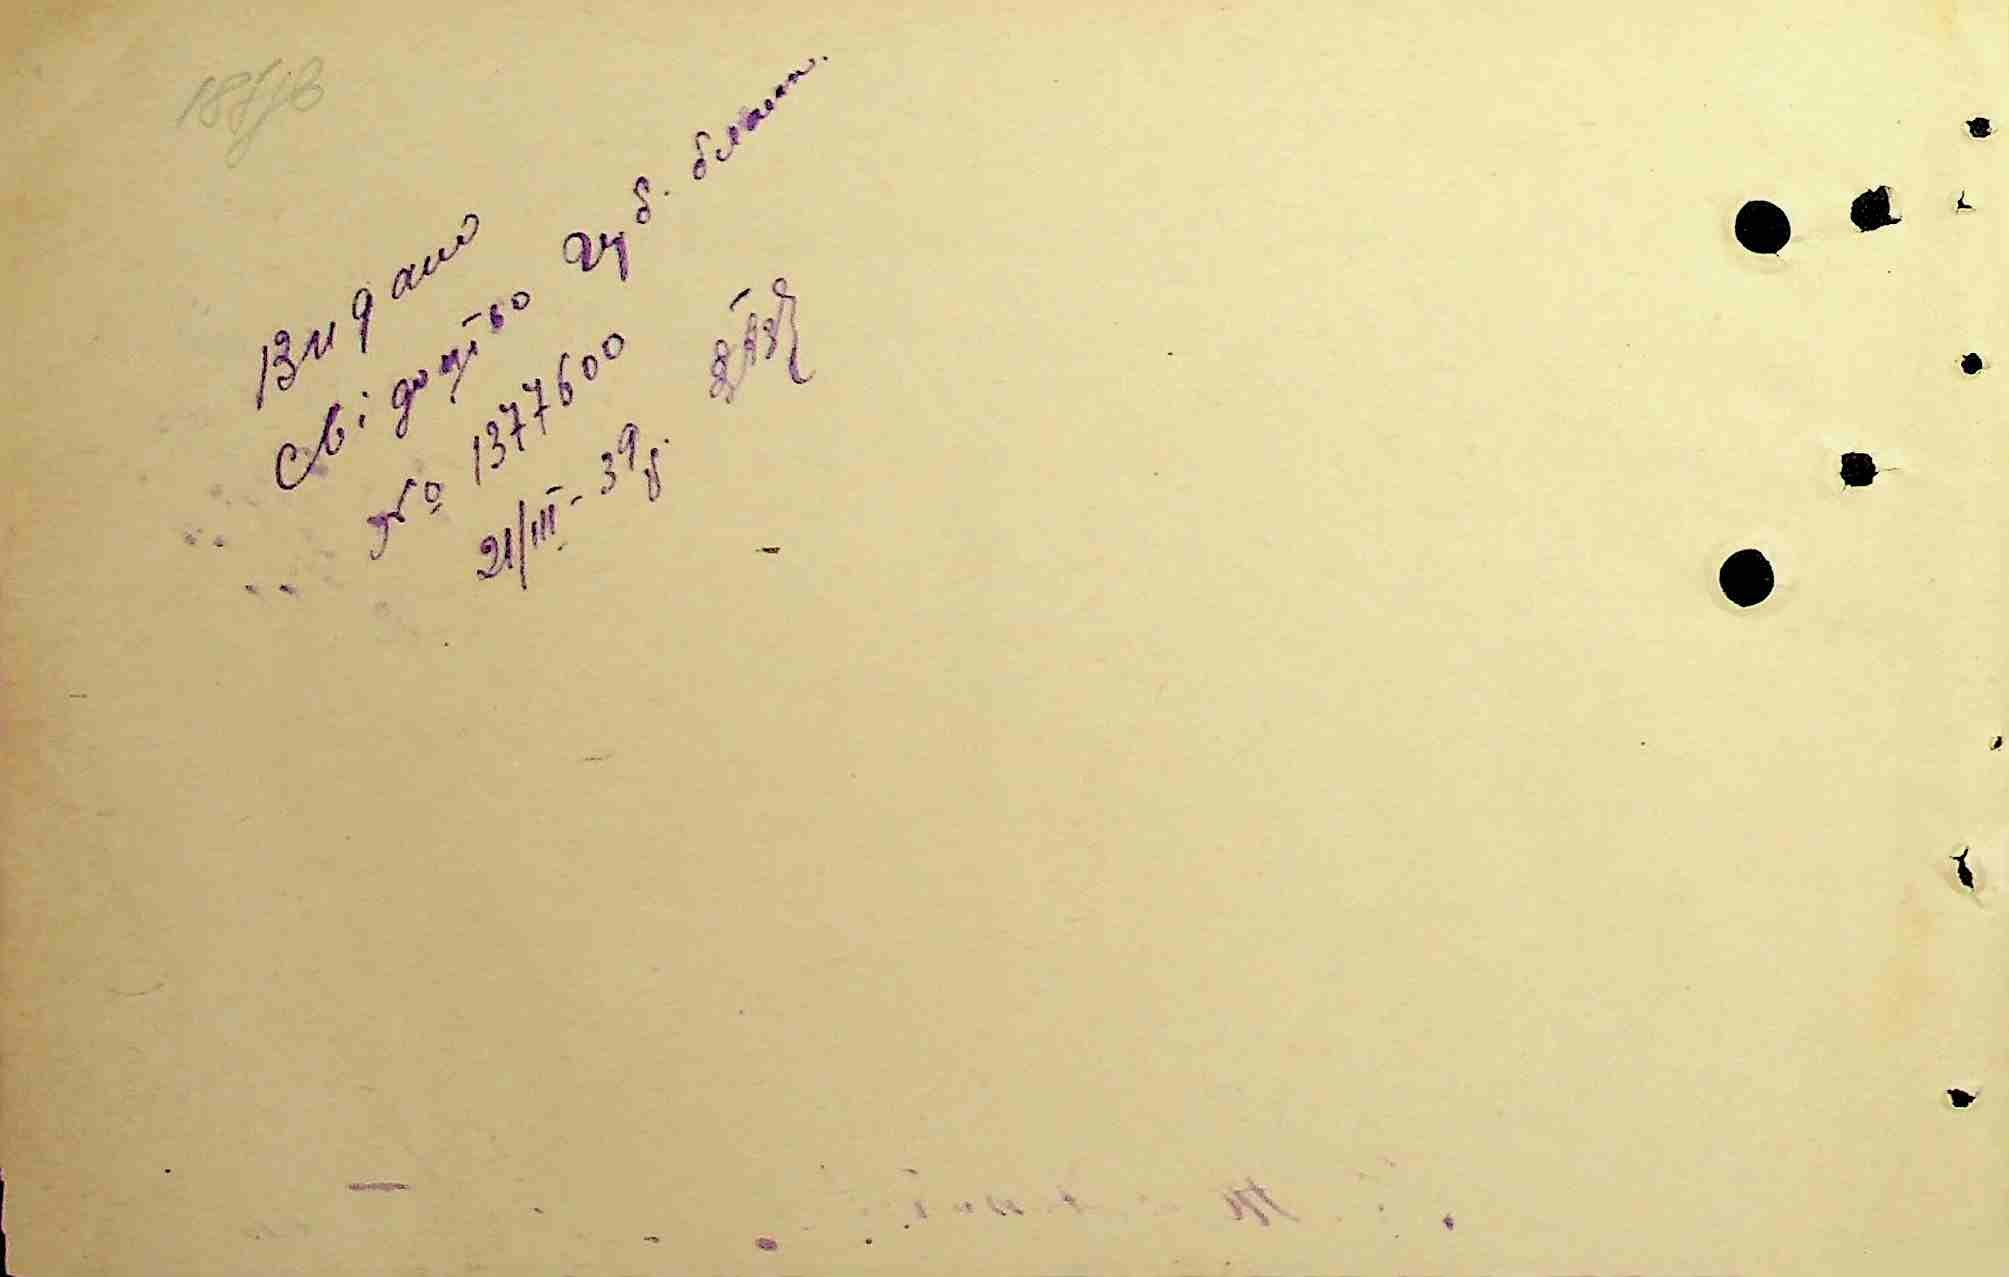 Видано
Свідоцтво дуб. бланк.
№ 1377600
21/III-39 р.